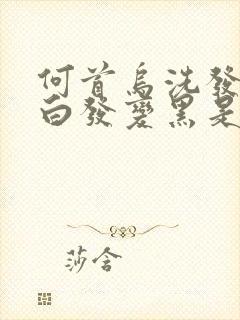 何首烏洗發
白發變黑是
莎含